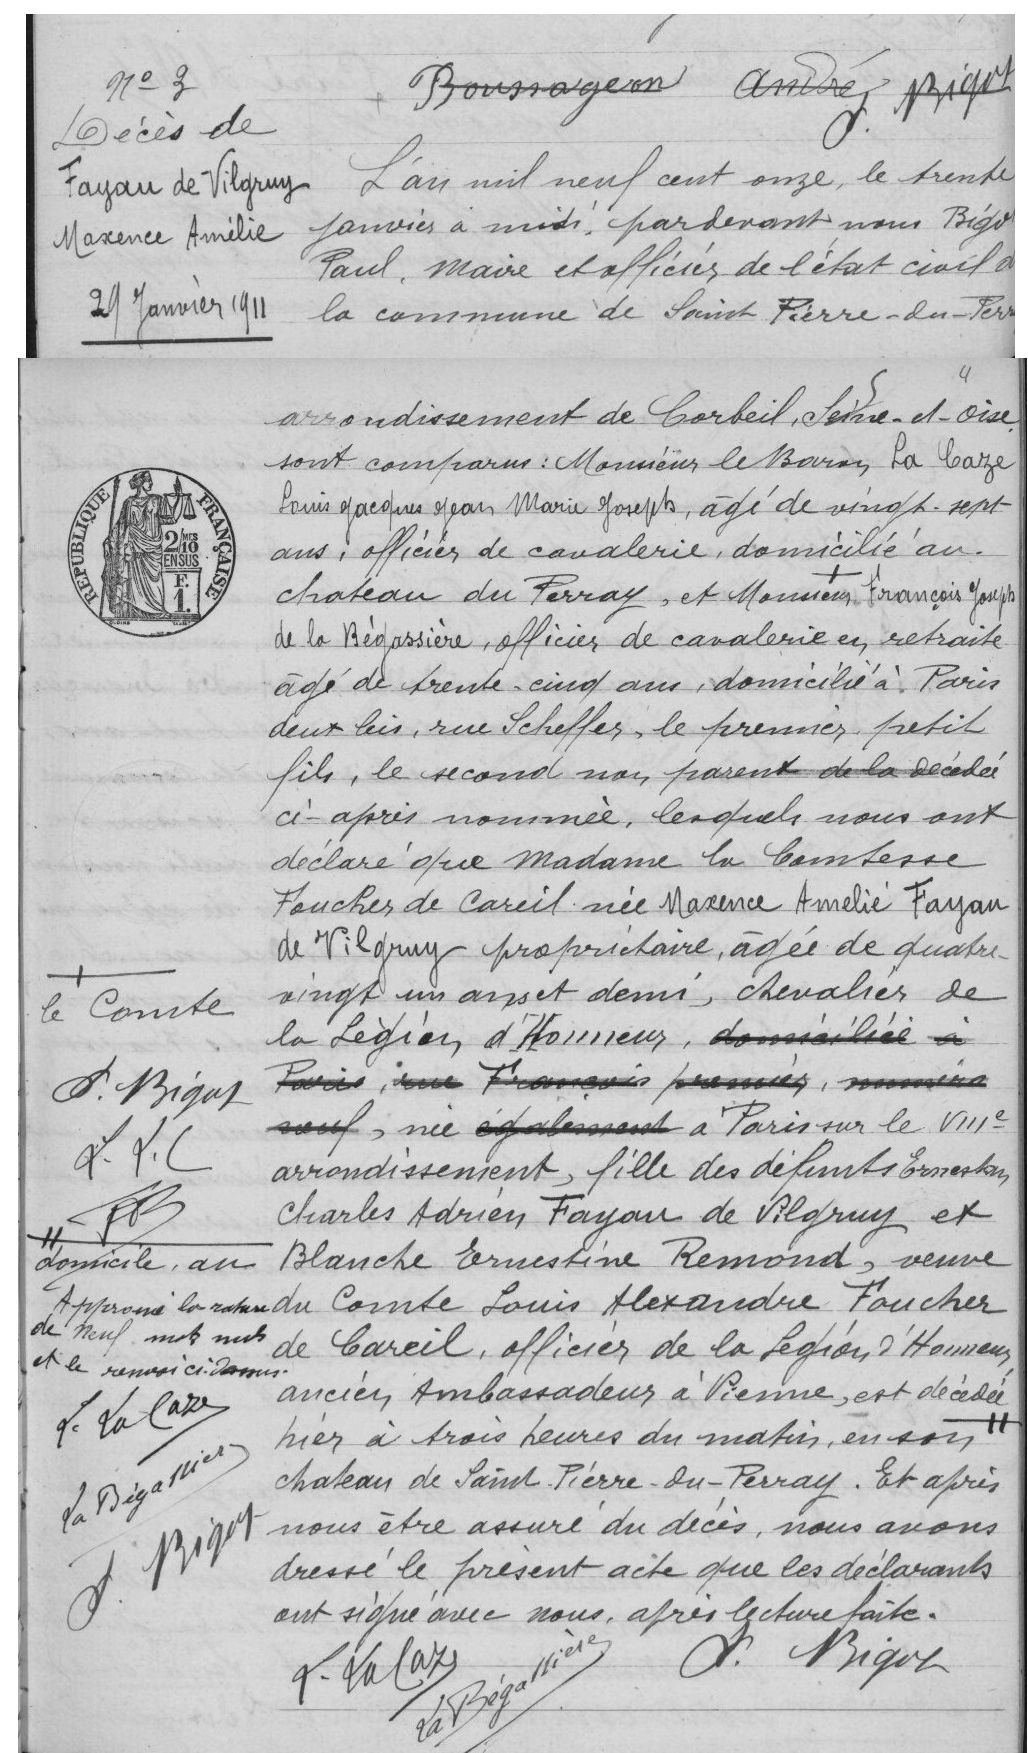 Boussageon André P. Bigot
N° 3
Décès de
Fayau de Vilgruy
Maxence Amélie
29 Janvier 1911
L'an mil neuf cent onze, le trente
janvier à midi, pardevant nous Bigot
Paul, Maire et officier de l'état civil d
la commune de Saint Pierre-du-Perr
4
arrondissement de Corbeil, Seine-et-Oise,
sont comparus : Monsieur le Baron La Caze
Louis Jacques Jean Marie Joseph, âgé de vingt-sept
ans, officier de cavalerie, domicilié au
chateau du Perray, et Monsieur François Joseph
de la Bégassière, officier de cavalerie en retraite
âgé de trente-cinq ans, domicilié à Paris
deux bis, rue Scheffer, le premier petit
fils, le second non parent de la décédée
ci-après nommée, lesquels nous ont
déclaré que Madame la Comtesse
Foucher de Careil née Maxence Amelié Fayau
de Vilgruy propriétaire, âgée de quatre-
vingt un ans et demi, chevalier de
la Légion d'Honneur, domiciliée à
Paris, rue François premier, numéro
neuf, née également à Paris sur le VIIIe
arrondissement, fille des défunts Ernest
Charles Adrien Fayau de Vilgruy et
Blanche Ernestine Remond, veuve
du Comte Louis Alexandre Foucher
de Careil, officier de la Légion d'Honneur,
ancien Ambassadeur à Vienne, est décédée
hier à trois heures du matin, en son
chateau de Saint-Pierre-du-Perray. Et après
nous être assuré du décès, nous avons
dressé le présent acte que les déclarants
ont signé avec nous, après lecture faite.
L. La Caze
La Bégassière
P. Bigot
REPUBLIQUE FRANÇAISE
2/10 MES
EN SUS
F.
1.
le Comte
P. Bigot
L. L. C
domicile, au
Approuvé la rature
de neuf mots nuls
et le renvoi ci-dessus.
L. La Caze
La Bégassière
P. Bigot